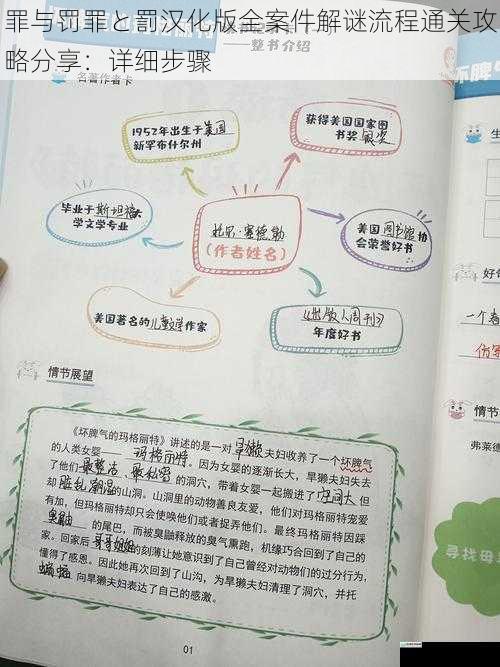 罪与罚罪と罰汉化版全案件解谜流程通关攻
略分享：详细步骤
——整书介绍
名著作者卡
1952年出生于美国
新罕布什尔州
获得美国国家图
书奖银奖
毕业于斯坦福大
学文学专业
托尔·赛德勒
(作者姓名)
美国图书馆协
会荣誉好书
美国著名的儿童文学作家
《出版人周刊》
年度好书
情节展望
《坏脾气的玛格丽特》讲述的是一对旱獭夫妇收养了一个坏脾气
的人类女婴——玛格丽特。因为女婴的逐渐长大，旱獭夫妇失去
了他们最整洁、最私密的洞穴，带着女婴一起搬进了空间大但
却脏乱潮湿的山洞。山洞里的动物善良友爱，他们对玛格丽特宠爱
有加，但玛格丽特却只会使唤他们或者捉弄他们。最终玛格丽特因踩
臭鼬的尾巴，而被臭鼬释放的臭气熏跑，机缘巧合回到了自己的
家。回家后哥哥姐姐的刻薄让她意识到了自己曾经对动物们的过分行为，
懂得了感恩。因此她再次回到了山沟，为旱獭夫妇清理了洞穴，并托
蝙蝠向旱獭夫妇表达了自己的感激。
01
坏脾
生
好句
一个春
仿写
情节
弗莱德
寻找母